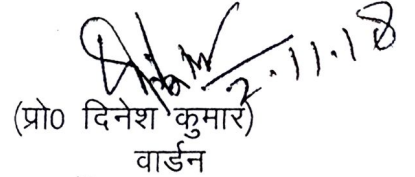 2.11.18
(प्रो0 दिनेश कुमार)
वार्डन